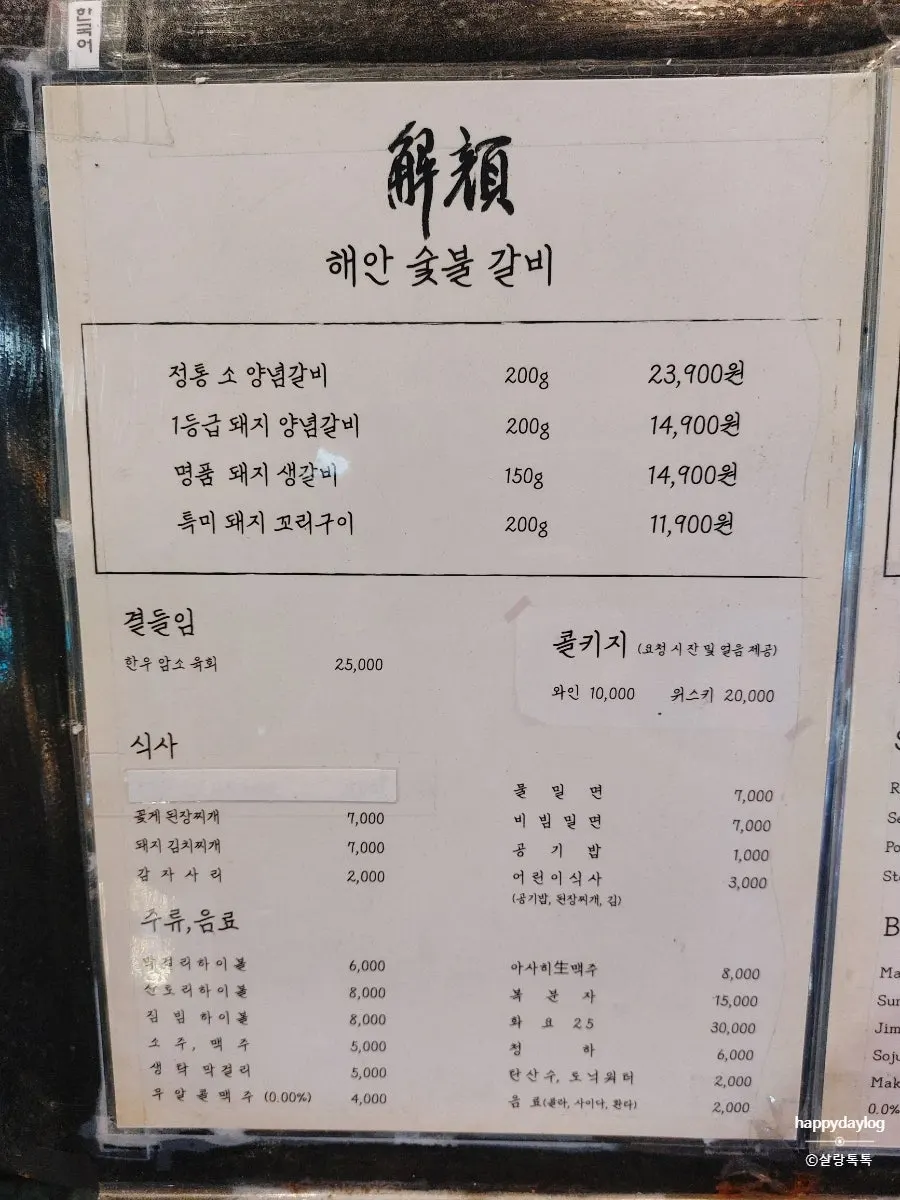 한국어
解顔
해안 숯불 갈비
정통 소 양념갈비 200g 23,900원
1등급 돼지 양념갈비 200g 14,900원
명품 돼지 생갈비 150g 14,900원
특미 돼지 꼬리구이 200g 11,900원
곁들임
한우 암소 육회 25,000
콜키지 (요청 시 잔 및 얼음 제공)
와인 10,000 위스키 20,000
식사
꽃게 된장찌개 7,000
돼지 김치찌개 7,000
감 자 사 리 2,000
물 밀 면 7,000
비 빔 밀 면 7,000
공 기 밥 1,000
어 린 이 식 사 3,000
(공기밥, 된장찌개, 김)
주류,음료
막 걸 리 하 이 볼 6,000
산 토 리 하 이 볼 8,000
짐 빔 하 이 볼 8,000
소 주, 맥 주 5,000
생 탁 막 걸 리 5,000
무 알 콜 맥 주 (0.00%) 4,000
아사히生맥주 8,000
복 분 자 15,000
화 요 25 30,000
청 하 6,000
탄산수, 토닉워터 2,000
음 료(콜라, 사이다, 환타) 2,000
Ma
Sun
Jim
Soju
Mak
0.0%
happydaylog
©살랑톡톡